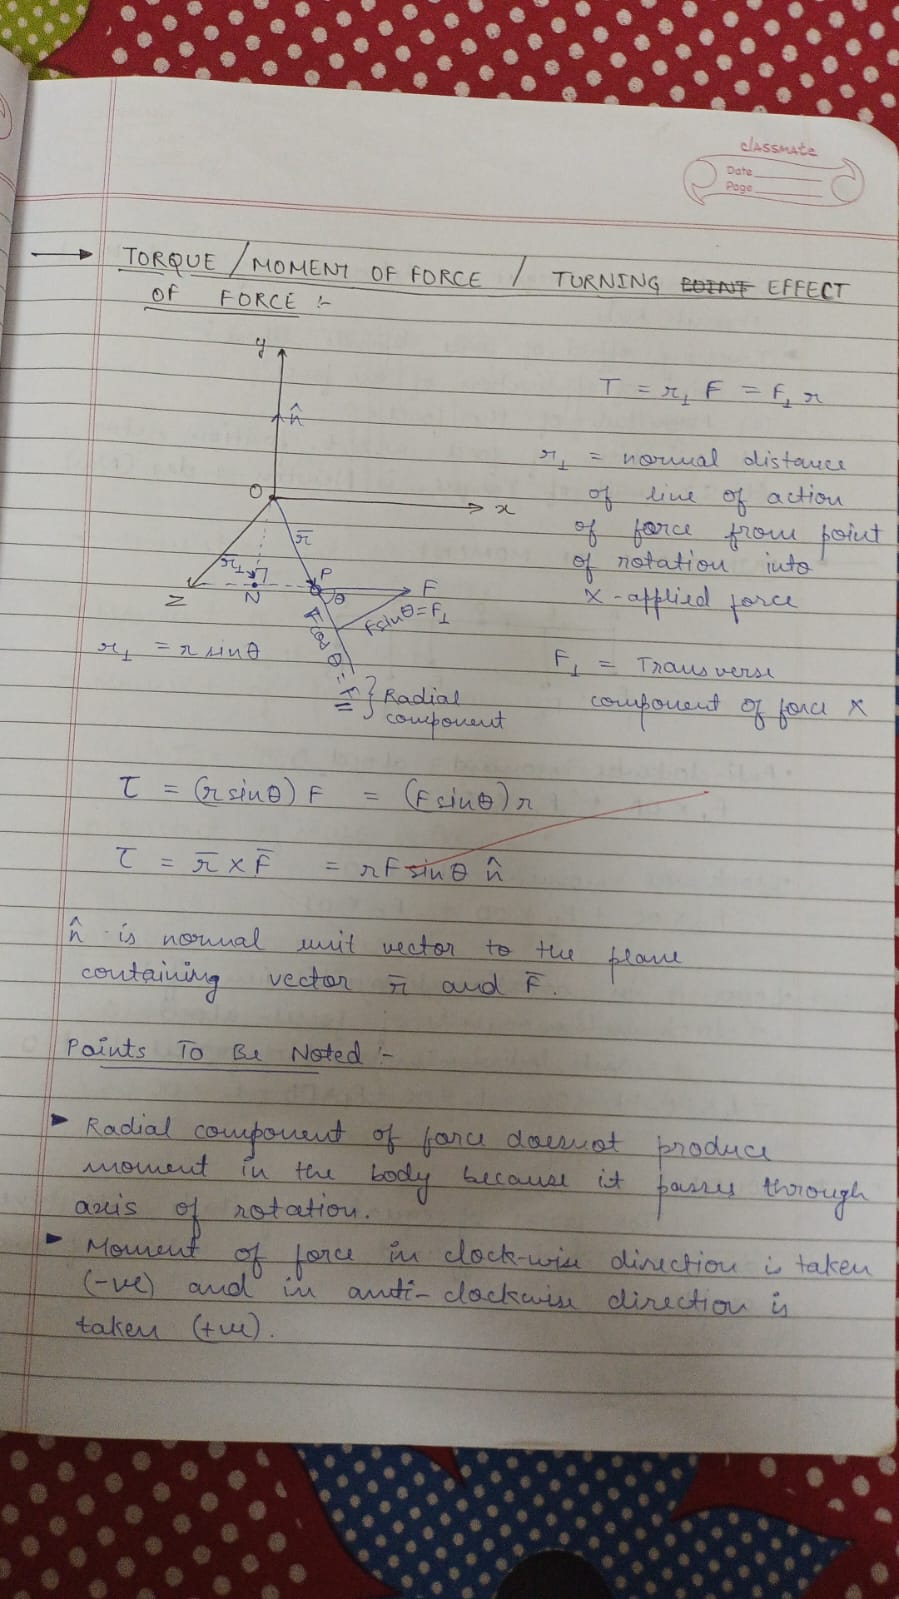 classmate
Date
Page
→ TORQUE / MOMENT OF FORCE / TURNING EFFECT
OF FORCE :-
y
n̂
O
x
r̄
r⊥
P
F
θ
Z
N
F sinθ = F⊥
F cos θ = F∥ } Radial
component
r⊥ = r sinθ
T = r⊥ F = F⊥ r
r⊥ = normal distance
of line of action
of force from point
of rotation into
x-applied force
F⊥ = Transverse
component of force x
τ = (r sinθ) F = (F sinθ) r
τ = r̄ × F̄ = r F sin θ n̂
n̂ is normal unit vector to the plane
containing vector r̄ and F̄.
Points To Be Noted :-
▸ Radial component of force doesnot produce
moment in the body because it passes through
axis of rotation.
▸ Moment of force in clock-wise direction is taken
(-ve) and in anti-clockwise direction is
taken (+ve).